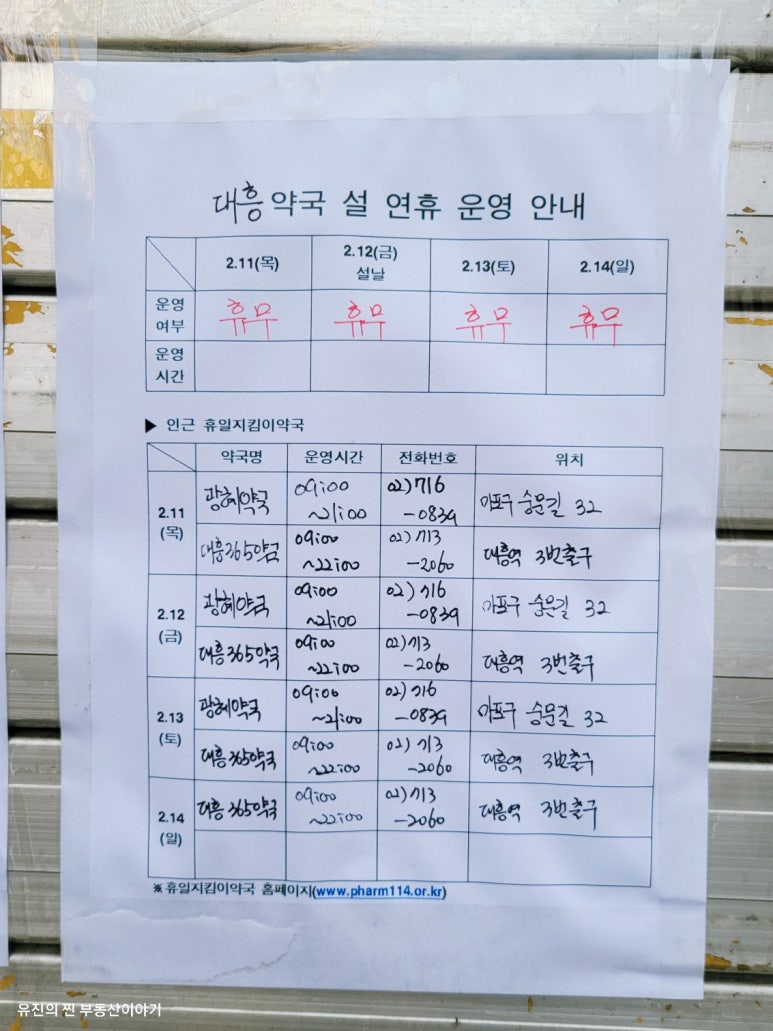 대흥약국 설 연휴 운영 안내
2.11(목) 2.12(금) 설날 2.13(토) 2.14(일)
운영 여부 휴무 휴무 휴무 휴무
운영 시간
▶ 인근 휴일지킴이약국
약국명 운영시간 전화번호 위치
2.11 (목) 광혜약국 09:00 ~21:00 02)716 -0839 마포구 숭문길 32
대흥365약국 09:00 ~22:00 02)713 -2060 대흥역 3번출구
2.12 (금) 광혜약국 09:00 ~21:00 02)716 -0839 마포구 숭문길 32
대흥365약국 09:00 ~22:00 02)713 -2060 대흥역 3번출구
2.13 (토) 광혜약국 09:00 ~21:00 02)716 -0839 마포구 숭문길 32
대흥365약국 09:00 ~22:00 02)713 -2060 대흥역 3번출구
2.14 (일) 대흥365약국 09:00 ~22:00 02)713 -2060 대흥역 3번출구
※휴일지킴이약국 홈페이지(www.pharm114.or.kr)
유진의 찐 부동산이야기